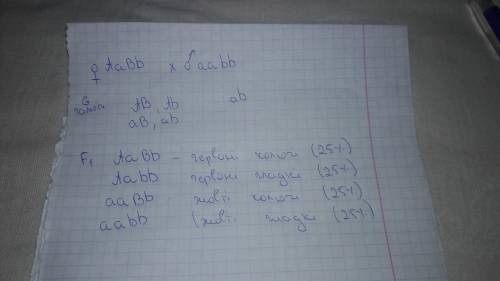 ♀ AaBb x ♂ aabb
G AB, Ab ab
гамети aB, ab
F₁ AaBb - червоні колючі (25%)
Aabb червоні гладкі (25%)
aaBb жовті колючі (25%)
aabb (жовті гладкі (25%)